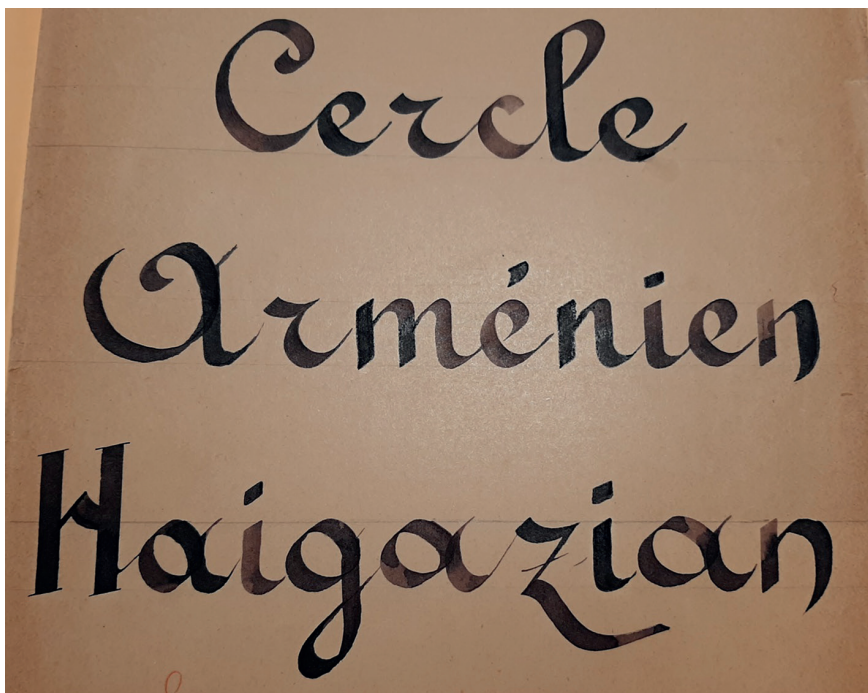 Cercle
Arménien
Haigazian